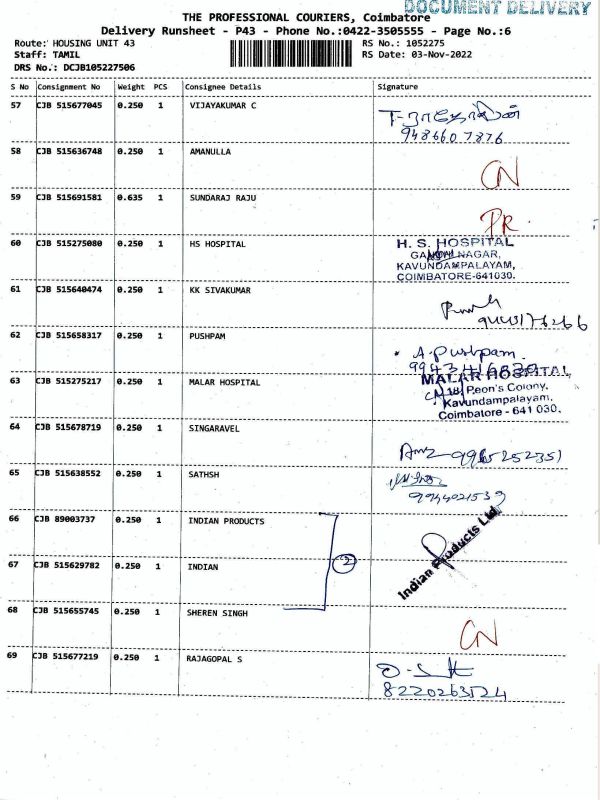 DOCUMENT DELIVERY
THE PROFESSIONAL COURIERS, Coimbatore
Delivery Runsheet - P43 - Phone No.:0422-3505555 - Page No.:6
Route: HOUSING UNIT 43
RS No.: 1052275
Staff: TAMIL
RS Date: 03-Nov-2022
DRS No.: DCJB105227506
S No Consignment No Weight PCS Consignee Details Signature
57 CJB 515677045 0.250 1 VIJAYAKUMAR C
9486607876
58 CJB 515636748 0.250 1 AMANULLA
CN
59 CJB 515691581 0.635 1 SUNDARAJ RAJU
PR
60 CJB 515275080 0.250 1 HS HOSPITAL H. S. HOSPITAL
GANDHI NAGAR,
KAVUNDAMPALAYAM,
COIMBATORE-641030.
61 CJB 515640474 0.250 1 KK SIVAKUMAR
62 CJB 515658317 0.250 1 PUSHPAM
A. Pushpam.
63 CJB 515275217 0.250 1 MALAR HOSPITAL MALAR HOSPITAL,
18, Peon's Colony,
Kavundampalayam,
Coimbatore - 641 030.
64 CJB 515678719 0.250 1 SINGARAVEL
65 CJB 515638552 0.250 1 SATHSH
9944021539
66 CJB 89003737 0.250 1 INDIAN PRODUCTS
Indian Products Ltd
67 CJB 515629782 0.250 1 INDIAN
2
68 CJB 515655745 0.250 1 SHEREN SINGH
CN
69 CJB 515677219 0.250 1 RAJAGOPAL S